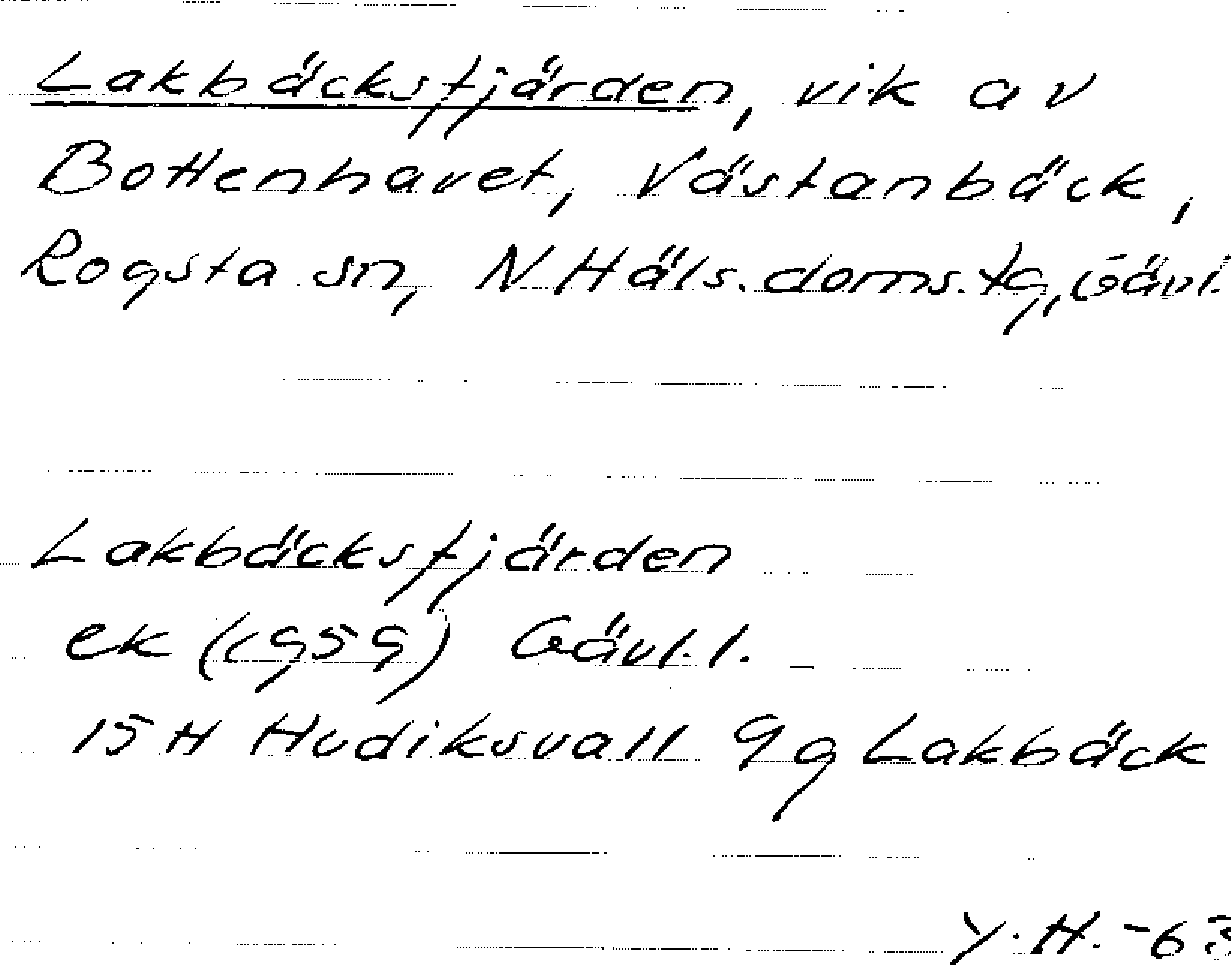 Lakbäcksfjärden, vik av
Bottenhavet, Västanbäck,
Rogsta sn, N.Häls.doms.tg, Gävl.
Lakbäcksfjärden
ek (1959) Gävl.l.
15 H Hudiksvall 9g Lakbäck
Y.H.-63